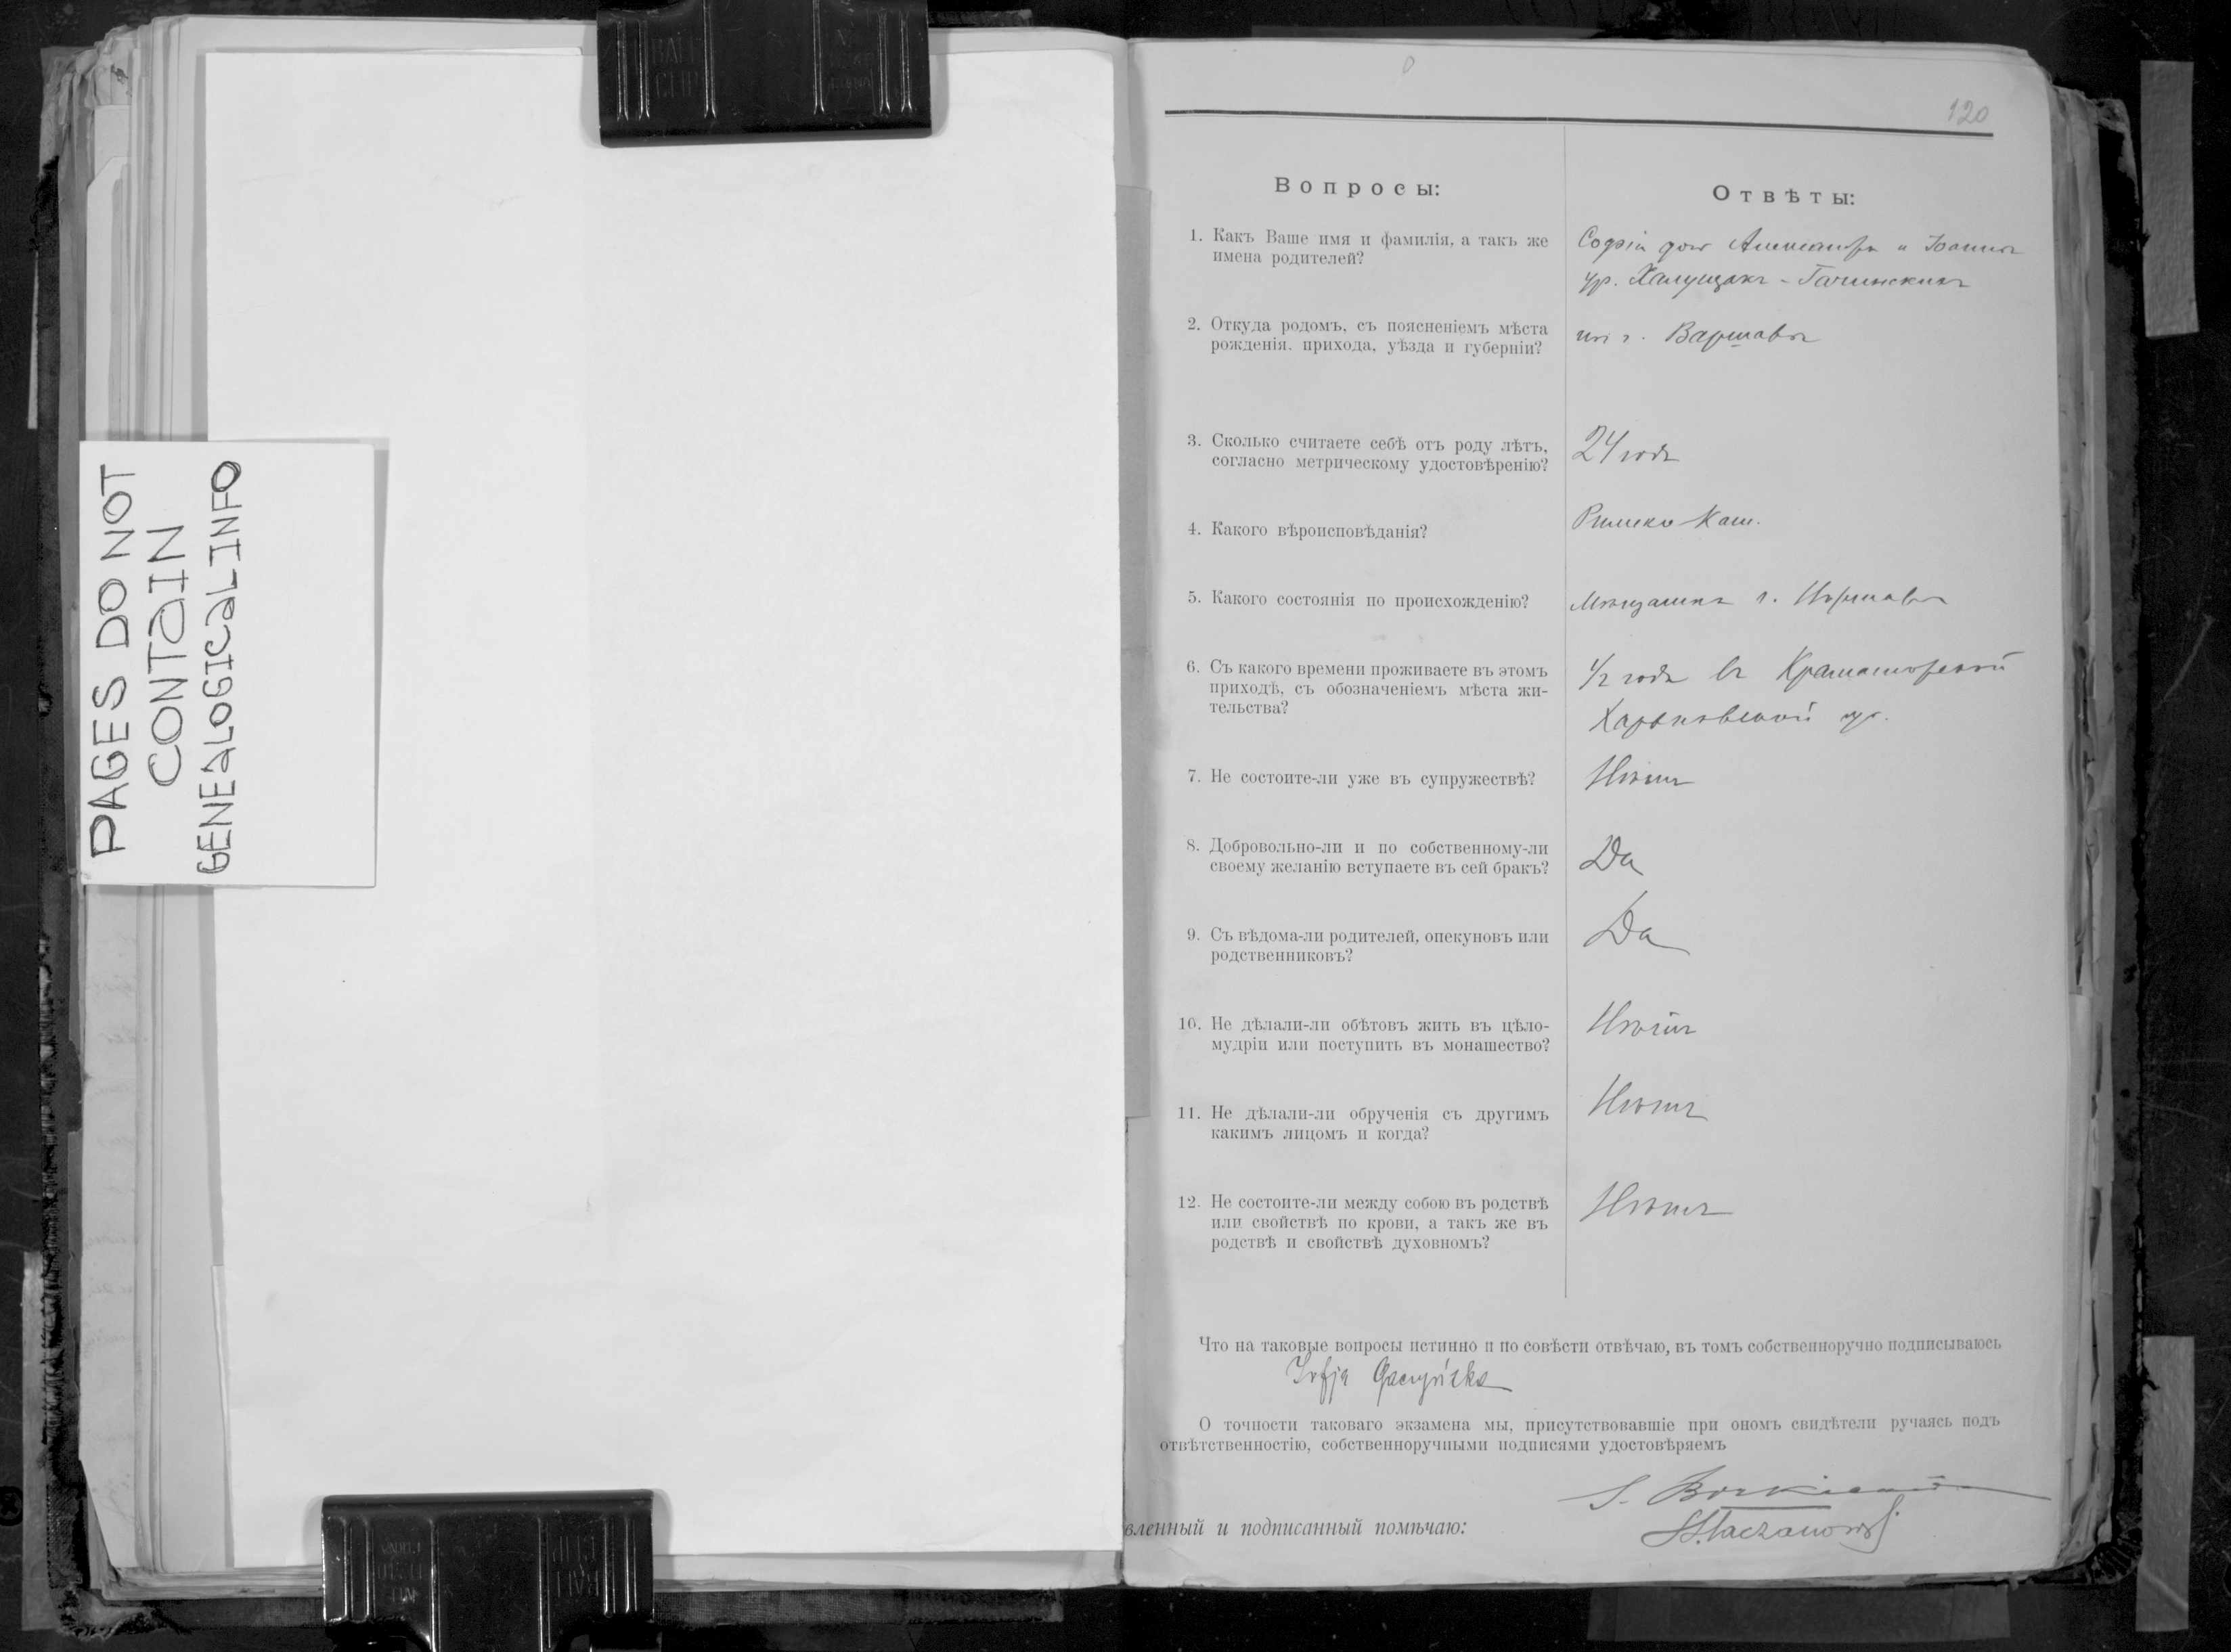 PAGES DO NOT
CONTAIN
GENEALOGICAL INFO
120
Вопросы:
Отвѣты:
1. Какъ Ваше имя и фамилія, а такъ же
имена родителей?
Софія доч Александра и Іоанны
ур. Халущакъ-Гачинскихъ
2. Откуда родомъ, съ поясненіемъ мѣста
рожденія, прихода, уѣзда и губерніи?
изъ г. Варшавы
3. Сколько считаете себѣ отъ роду лѣтъ,
согласно метрическому удостовѣренію?
24 года
4. Какого вѣроисповѣданія?
Римско-Кат.
5. Какого состоянія по происхожденію?
Мѣщанка г. Варшавы
6. Съ какого времени проживаете въ этомъ
приходѣ, съ обозначеніемъ мѣста жи-
тельства?
1/2 года въ Краматорской
Харьковской гу.
7. Не состоите-ли уже въ супружествѣ?
Нѣтъ
8. Добровольно-ли и по собственному-ли
своему желанію вступаете въ сей бракъ?
Да
9. Съ вѣдома-ли родителей, опекуновъ или
родственниковъ?
Да
10. Не дѣлали-ли обѣтовъ жить въ цѣло-
мудріи или поступить въ монашество?
Нѣтъ
11. Не дѣлали-ли обрученія съ другимъ
какимъ лицомъ и когда?
Нѣтъ
12. Не состоите-ли между собою въ родствѣ
или свойствѣ по крови, а такъ же въ
родствѣ и свойствѣ духовномъ?
Нѣтъ
Что на таковые вопросы истинно и по совѣсти отвѣчаю, въ томъ собственноручно подписываюсь
Zofja Gaczyńska
О точности таковаго экзамена мы, присутствовавшіе при ономъ свидѣтели ручаясь подъ
отвѣтственностію, собственноручными подписями удостовѣряемъ
S.
вленный и подписанный помѣчаю: